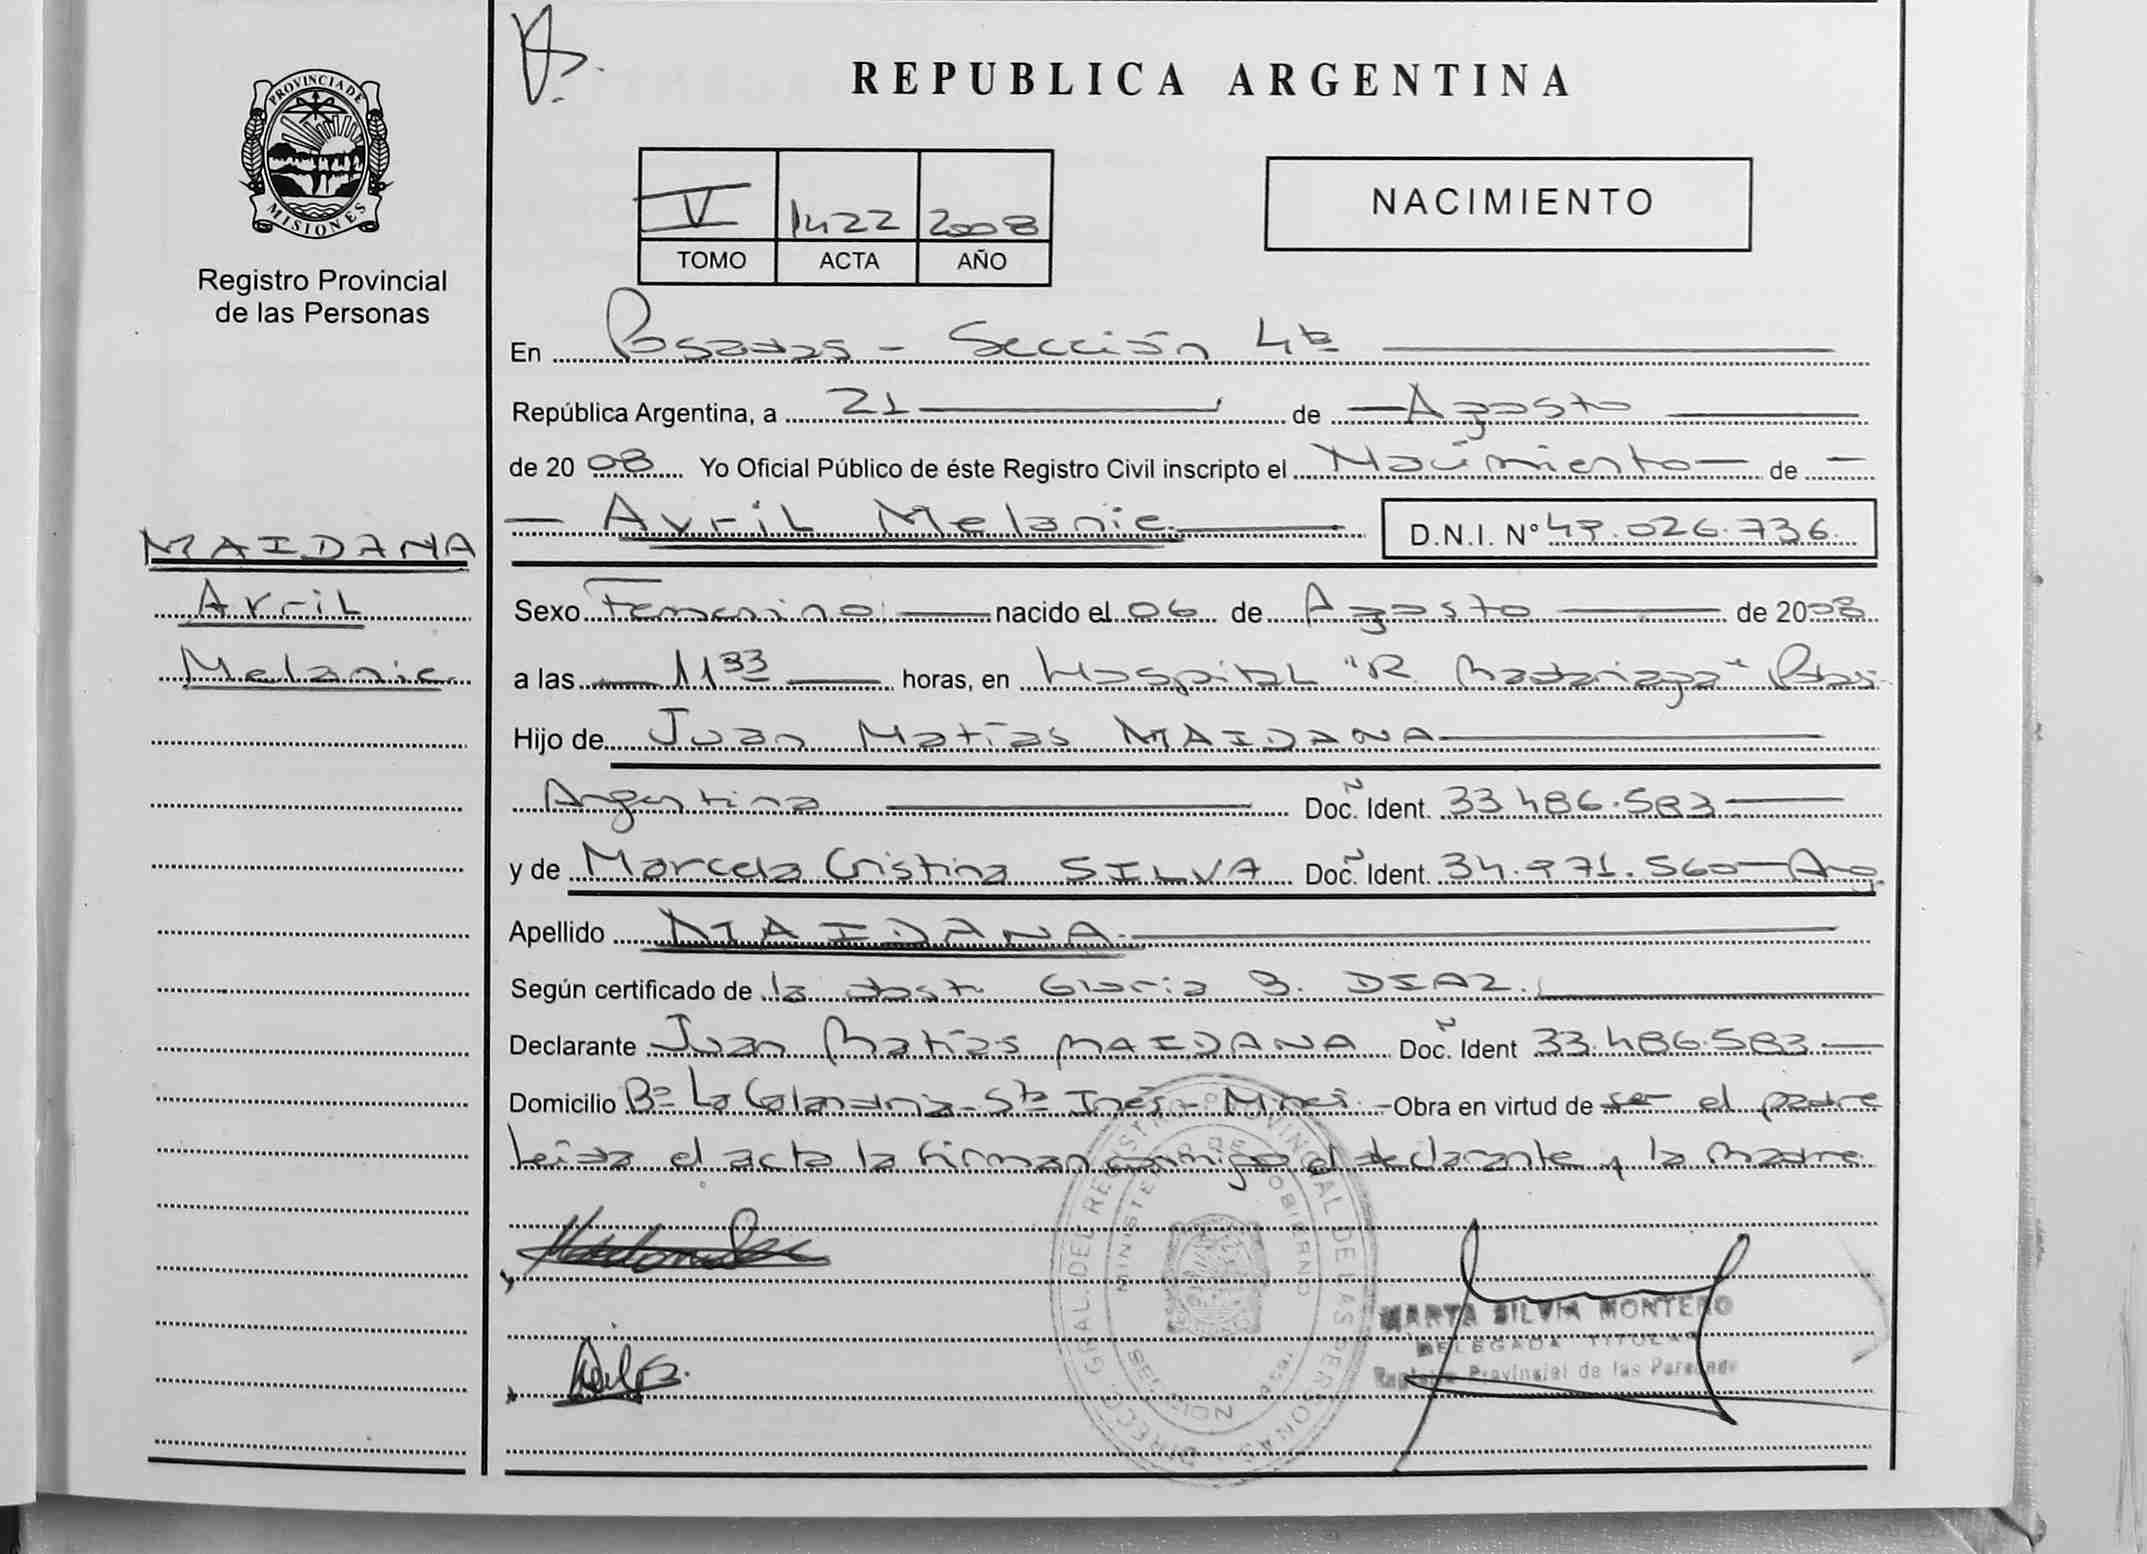 PROVINCIA DE
MISIONES
Registro Provincial
de las Personas
MAIDANA
Avril
Melanie
REPUBLICA ARGENTINA
V 1422 2008
TOMO ACTA AÑO
NACIMIENTO
En Posadas - Sección 4ta
República Argentina, a 21 de Agosto
de 2008 Yo Oficial Público de éste Registro Civil inscripto el Nacimiento de
Avril Melanie D.N.I. Nº 49.026.736.
Sexo Femenino nacido el 06 de Agosto de 2008
a las 11 33 horas, en Hospital "R. Madariaga" Pdas.
Hijo de Juan Matías MAIDANA
Argentina Doc. Ident. 33.486.583
y de Marcela Cristina SILVA Doc. Ident. 34.971.560 Arg
Apellido MAIDANA
Según certificado de la obst. Gloria B. DIAZ.
Declarante Juan Matías MAIDANA Doc. Ident 33.486.583
Domicilio Bº La Calandria - Sta Inés - Mnes. - Obra en virtud de ser el padre
Leída el acta la firman conmigo el declarante y la madre
MARTA SILVIA MONTERO
DELEGADA TITULAR
Registro Provincial de las Personas
DIRECC. GRAL. DEL REGISTRO PROVINCIAL DE LAS PERSONAS
MINISTERIO DE GOBIERNO